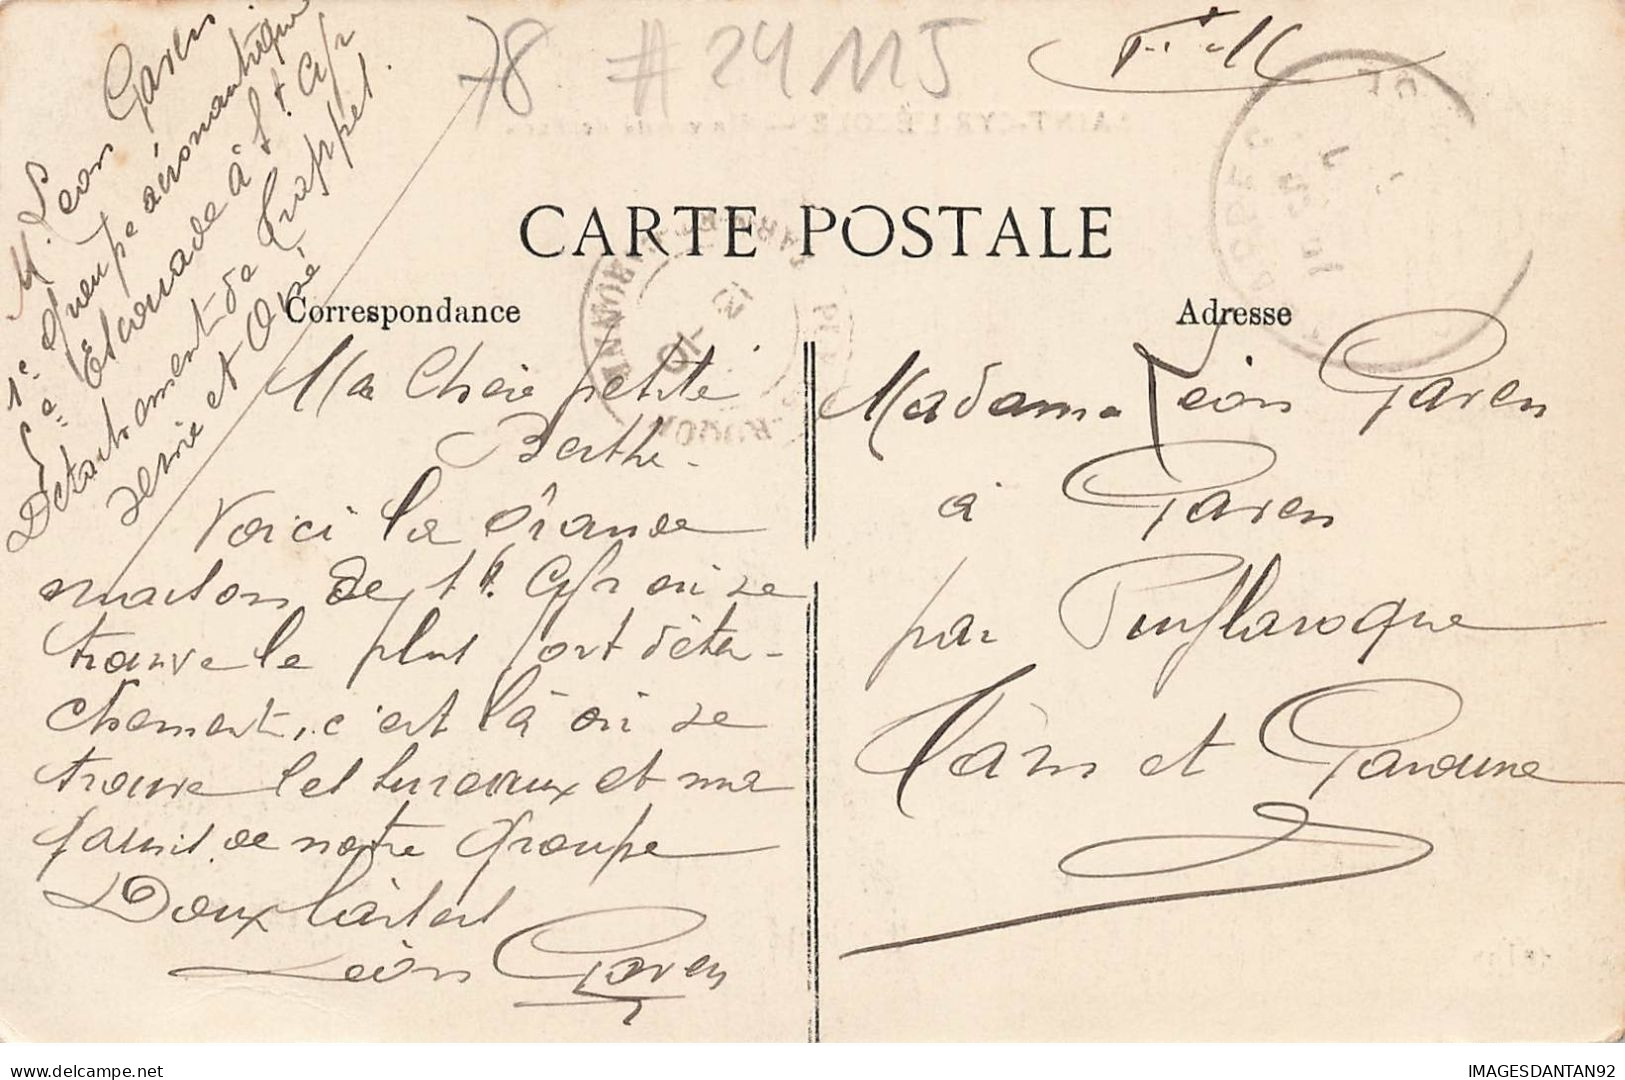 78 # 24115
F. M
CARTE POSTALE
Correspondance
Adresse
M. Léon Garen
1e Groupe aéronautique
5e Escouade à St Cyr
Détachement de Trappes
Seine et Oise
Ma Chère petite
Berthe.
Voici la Grande
maison de St Cyr où se
trouve le plus fort déta-
chement, c'est là où se
trouve les bureaux et ma
de notre Groupe
Doux baisers
Léon Garen
Madame Léon Garen
à Garen
par Puylaroque
Tarn et Garonne
TARN-ET-GARONNE
IMAGESDANTAN92